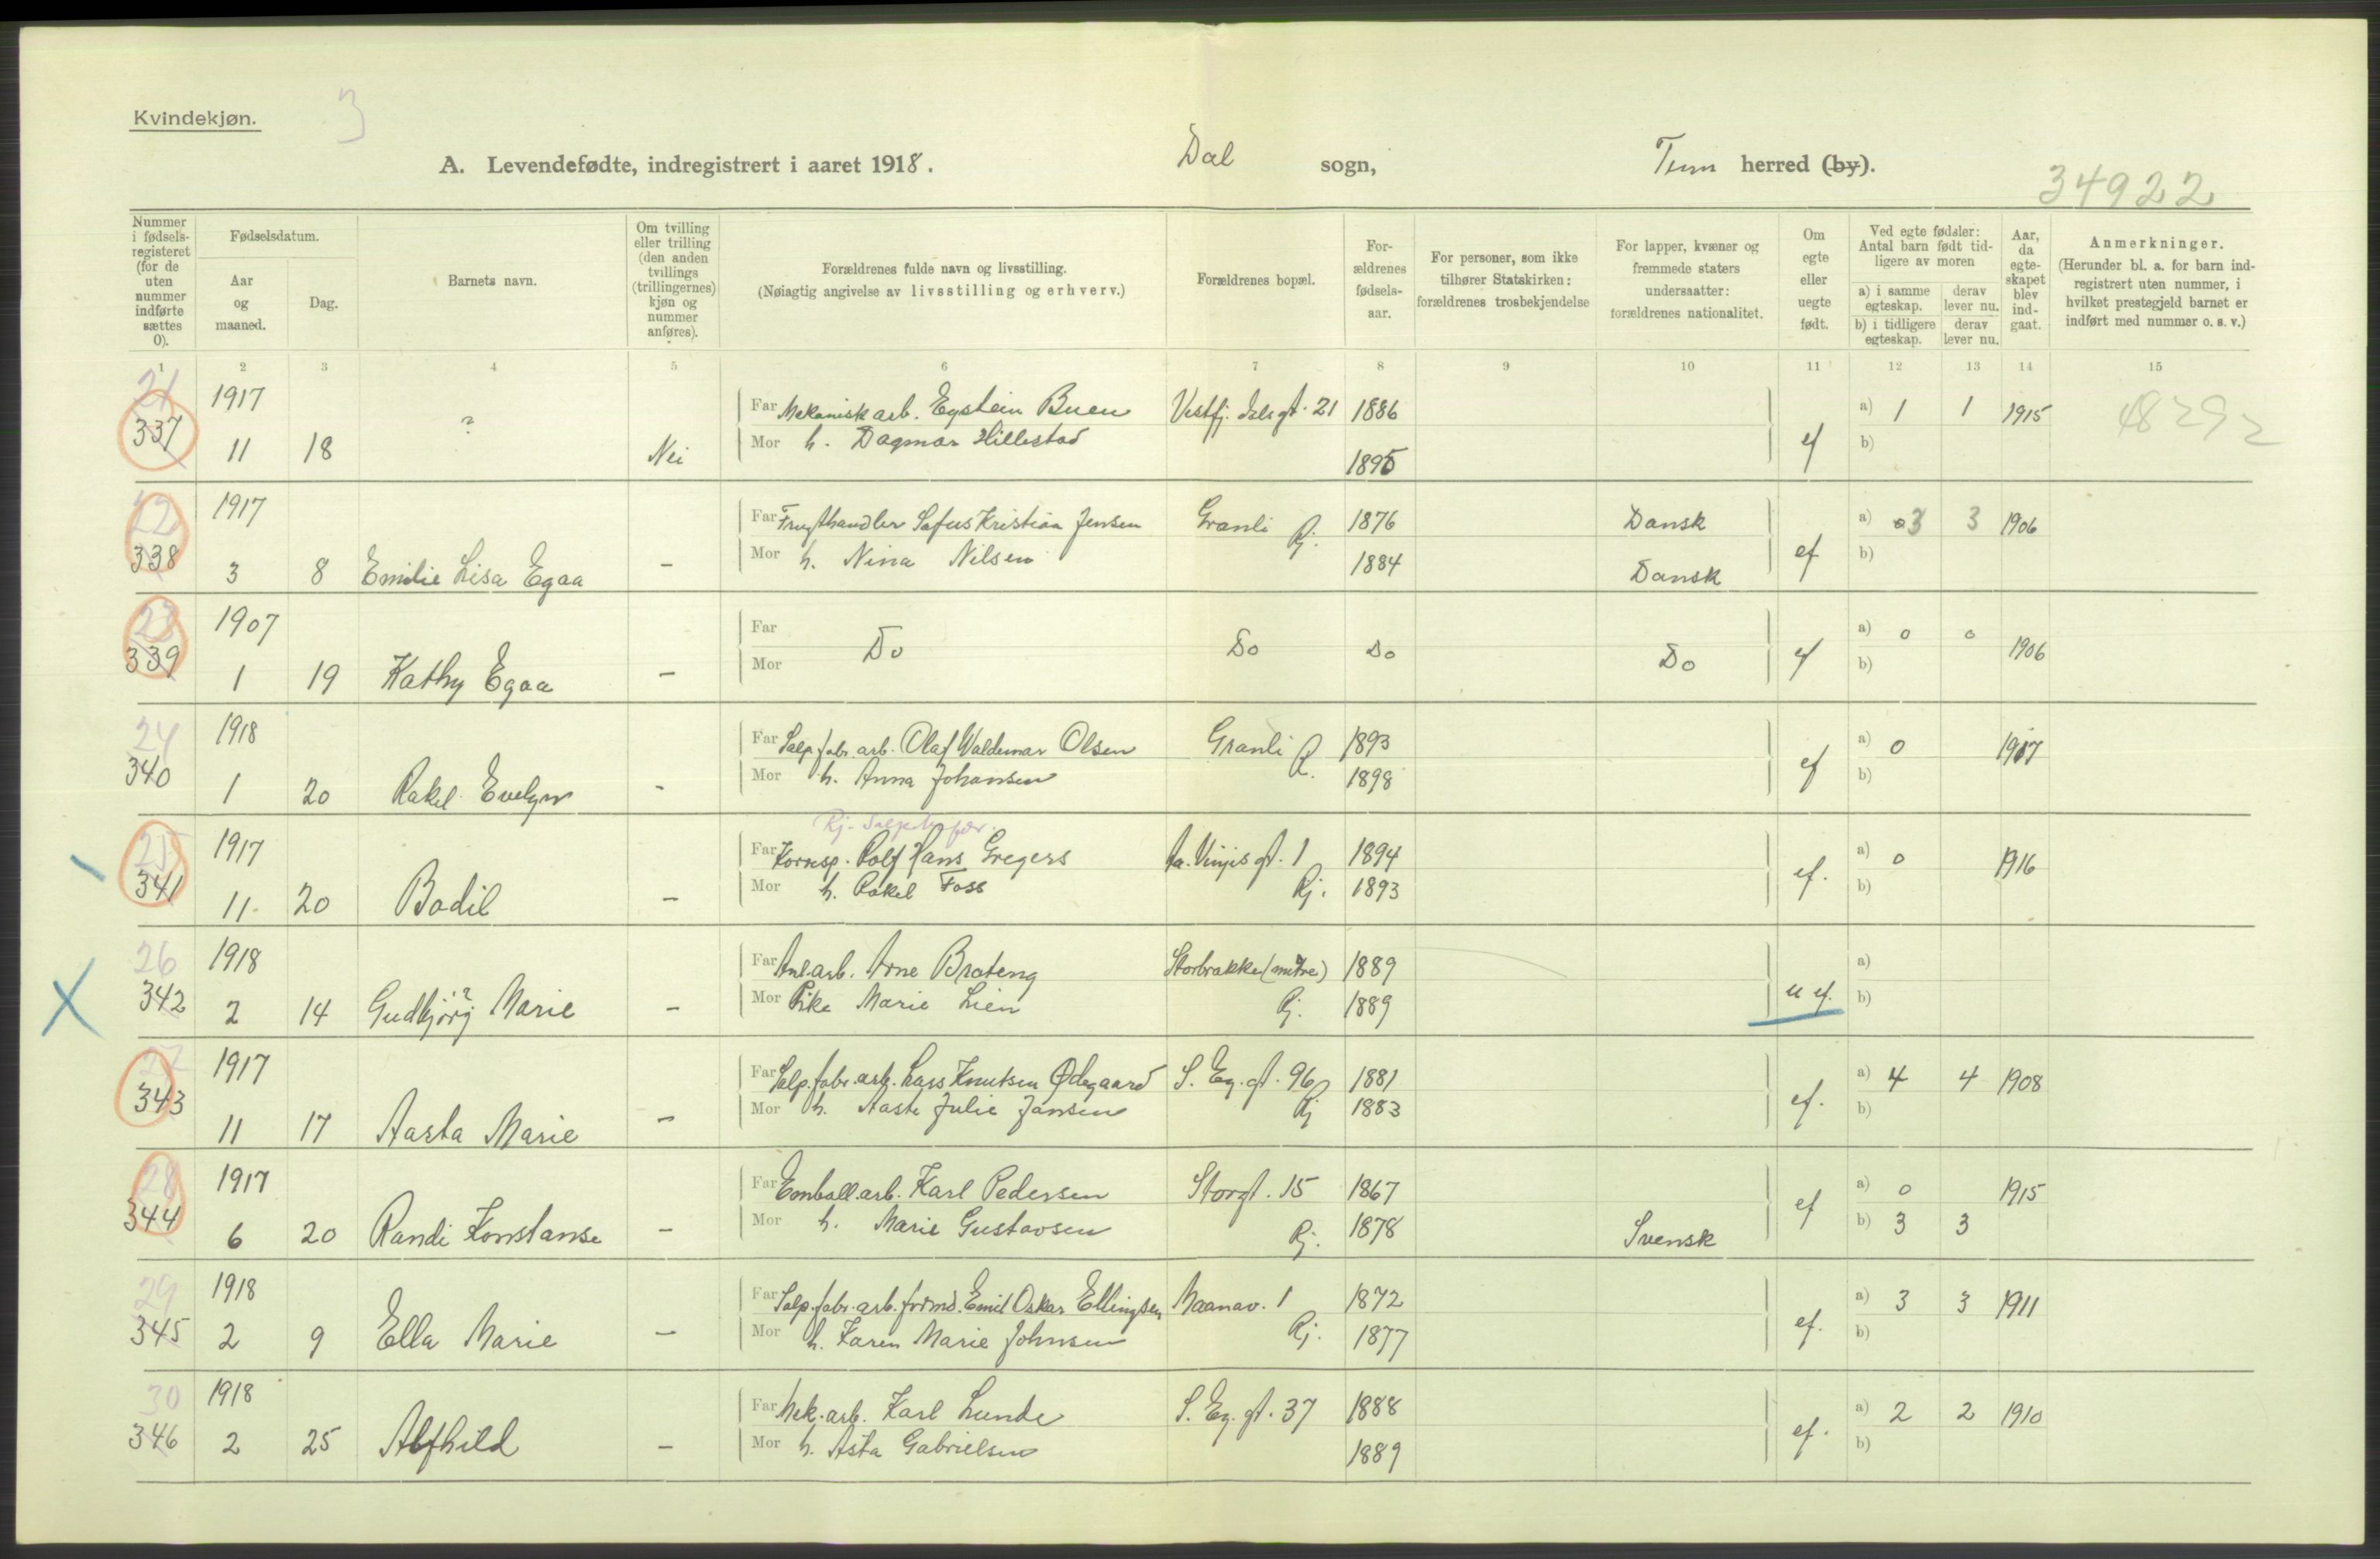 Kvindekjøn.
3
A. Levendefødte, indregistrert i aaret 1918.
Dal sogn,
herred (by).
34922
Nummer i fødsels-registeret (for de uten nummer indførte sættes 0).
Fødselsdatum.
Aar og maaned.
Dag.
Barnets navn.
Om tvilling eller trilling (den anden tvillings (trillingernes) kjøn og nummer anføres).
Forældrenes fulde navn og livsstilling.
(Nøiagtig angivelse av livsstilling og erhverv.)
Forældrenes bopæl.
For-ældrenes fødsels-aar.
For personer, som ikke tilhører Statskirken: forældrenes trosbekjendelse
For lapper, kvæner og fremmede staters undersaatter: forældrenes nationalitet.
Om egte eller uegte født.
Ved egte fødsler: Antal barn født tid-ligere av moren
a) i samme egteskap.
derav lever nu.
b) i tidligere egteskap.
derav lever nu.
Aar, da egte-skapet blev ind-gaat.
Anmerkninger.
(Herunder bl. a. for barn ind-registrert uten nummer, i hvilket prestegjeld barnet er indført med nummer o. s. v.)
1 2 3 4 5 6 7 8 9 10 11 12 13 14 15
21 1917 Far Mekanisk arb. Eystein Buen Vestfj. dals gt. 21 1886 a) 1 1 1915
337 11 18 ? Nei Mor h. Dagmar Hillestad 1895 ef b)
22 1917 Far Frugthandler Sofus Kristian Jensen Granli Rj. 1876 Dansk a) 3 3 1906
338 3 8 Emilie Lisa Egaa - Mor h. Nina Nilsen 1884 Dansk ef b)
23 1907 Far Do Do Do Do a) 0 0 1906
339 1 19 Kathy Egaa - Mor ef b)
24 1918 Far Salp. fabr. arb. Olaf Waldemar Olsen Granli 1893 a) 0 1917
340 1 20 Rakel Evelyn - Mor h. Anna Johansen R. 1898 ef b)
25 1917 Far Korresp. Rolf Hans Gregers Aa. Vinjes gt. 1 1894 a) 0 1916
341 11 20 Bodil - Mor h. Rakel Foss Rj. 1893 ef. b)
26 1918 Far Anl. arb. Arne Brateng Storbrakke 1889 a)
342 2 14 Gudbjörg ? Marie - Mor Pike Marie Lien Rj. 1889 u ef. b)
27 1917 Far Salp. fabr. arb. Lars Knutsen Ødegaard S. Eg. gt. 96 1881 a) 4 4 1908
343 11 17 Aasta Marie - Mor h. Aasta Julie Jansen Rj 1883 ef. b)
28 1917 Far Emball. arb. Karl Pedersen Storgt. 15 1867 a) 0 1915
344 6 20 Randi Konstanse - Mor h. Marie Gustavsen Rj. 1878 Svensk ef b) 3 3
29 1918 Far Salp. fabr. arb. formd. Emil Oskar Ellingsen Maanav. 1 1872 a) 3 3 1911
345 2 9 Ella Marie - Mor h. Karen Marie Johnsen Rj. 1877 ef. b)
30 1918 Far Mek. arb. Karl Lunde S. Eg. gt. 37 1888 a) 2 2 1910
346 2 25 Alfhild - Mor h. Asta Gabrielsen 1889 ef. b)